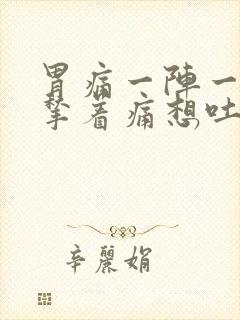 胃痛一陣一
揪着痛想吐
辛麗娟